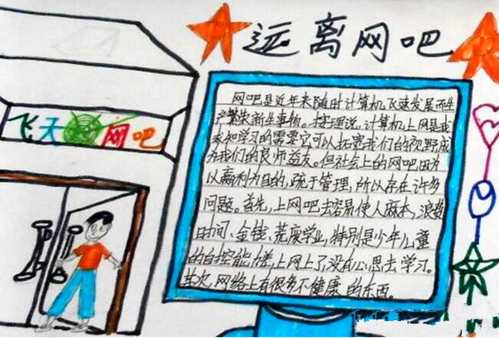 远离网吧
飞天网吧
网吧是近年来随时计算机飞速发展而生
产繁来新生事物。按理说,计算机上网是我
求知学习的需要它可以拓宽我们的视野成
为我们的良师益友。但社会上的网吧因为
以赢利为目的,疏于管理,所以存在许多
问题。首先,上网吧去容易使人麻木,浪费
时间、金钱、荒废学业,特别是少年儿童
的自控能力差,上网上了没有心思去学习。
其次,网络上有很多不健康的东西。